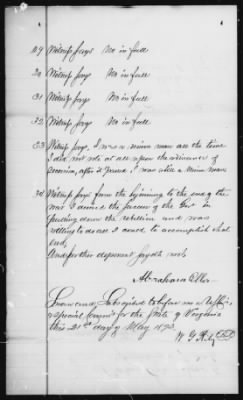 29 Witness says No in full
30 Witness says No in full
31 Witness says No in full
32 Witness says No in full
33 Witness says, I was a union man all the time
I did not vote at all upon the ordinance of
secession, after it passed I was still a Union man
34 Witness says from the beginning to the end of the
war I desired the success of the Govt in
putting down the rebellion and was
willing to do all I could to accomplish that
end,
And further deponent sayeth not
Abraham
Sworn and Subscribed to before me a
special Comr for the State of Virginia
this 21st day of May 1873